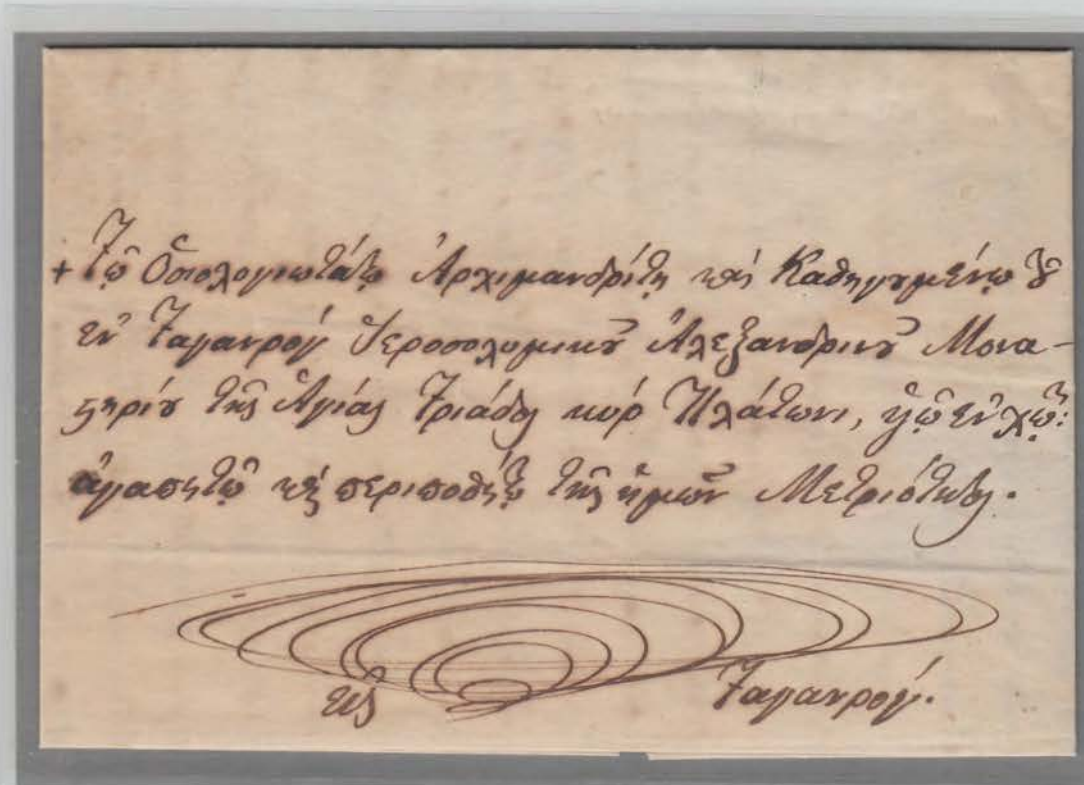 + Τῷ Ὁσιολογιωτάτῳ Ἀρχιμανδρίτῃ καὶ Καθηγȣμένῳ τȣ͂
ἐν Ταγανρὸγ Ἱεροσολυμικȣ͂ Ἀλεξανδρινȣ͂ Μονα-
ϛηρίȣ τῆς Ἁγίας Τριάδος κὺρ Πλάτωνι, ὑῷ ἐν χῷ:
ἀγαπητῷ καὶ περιποθήτῳ τῆς ἡμῶν Μετριότητος.
εἰς Ταγανρόγ.